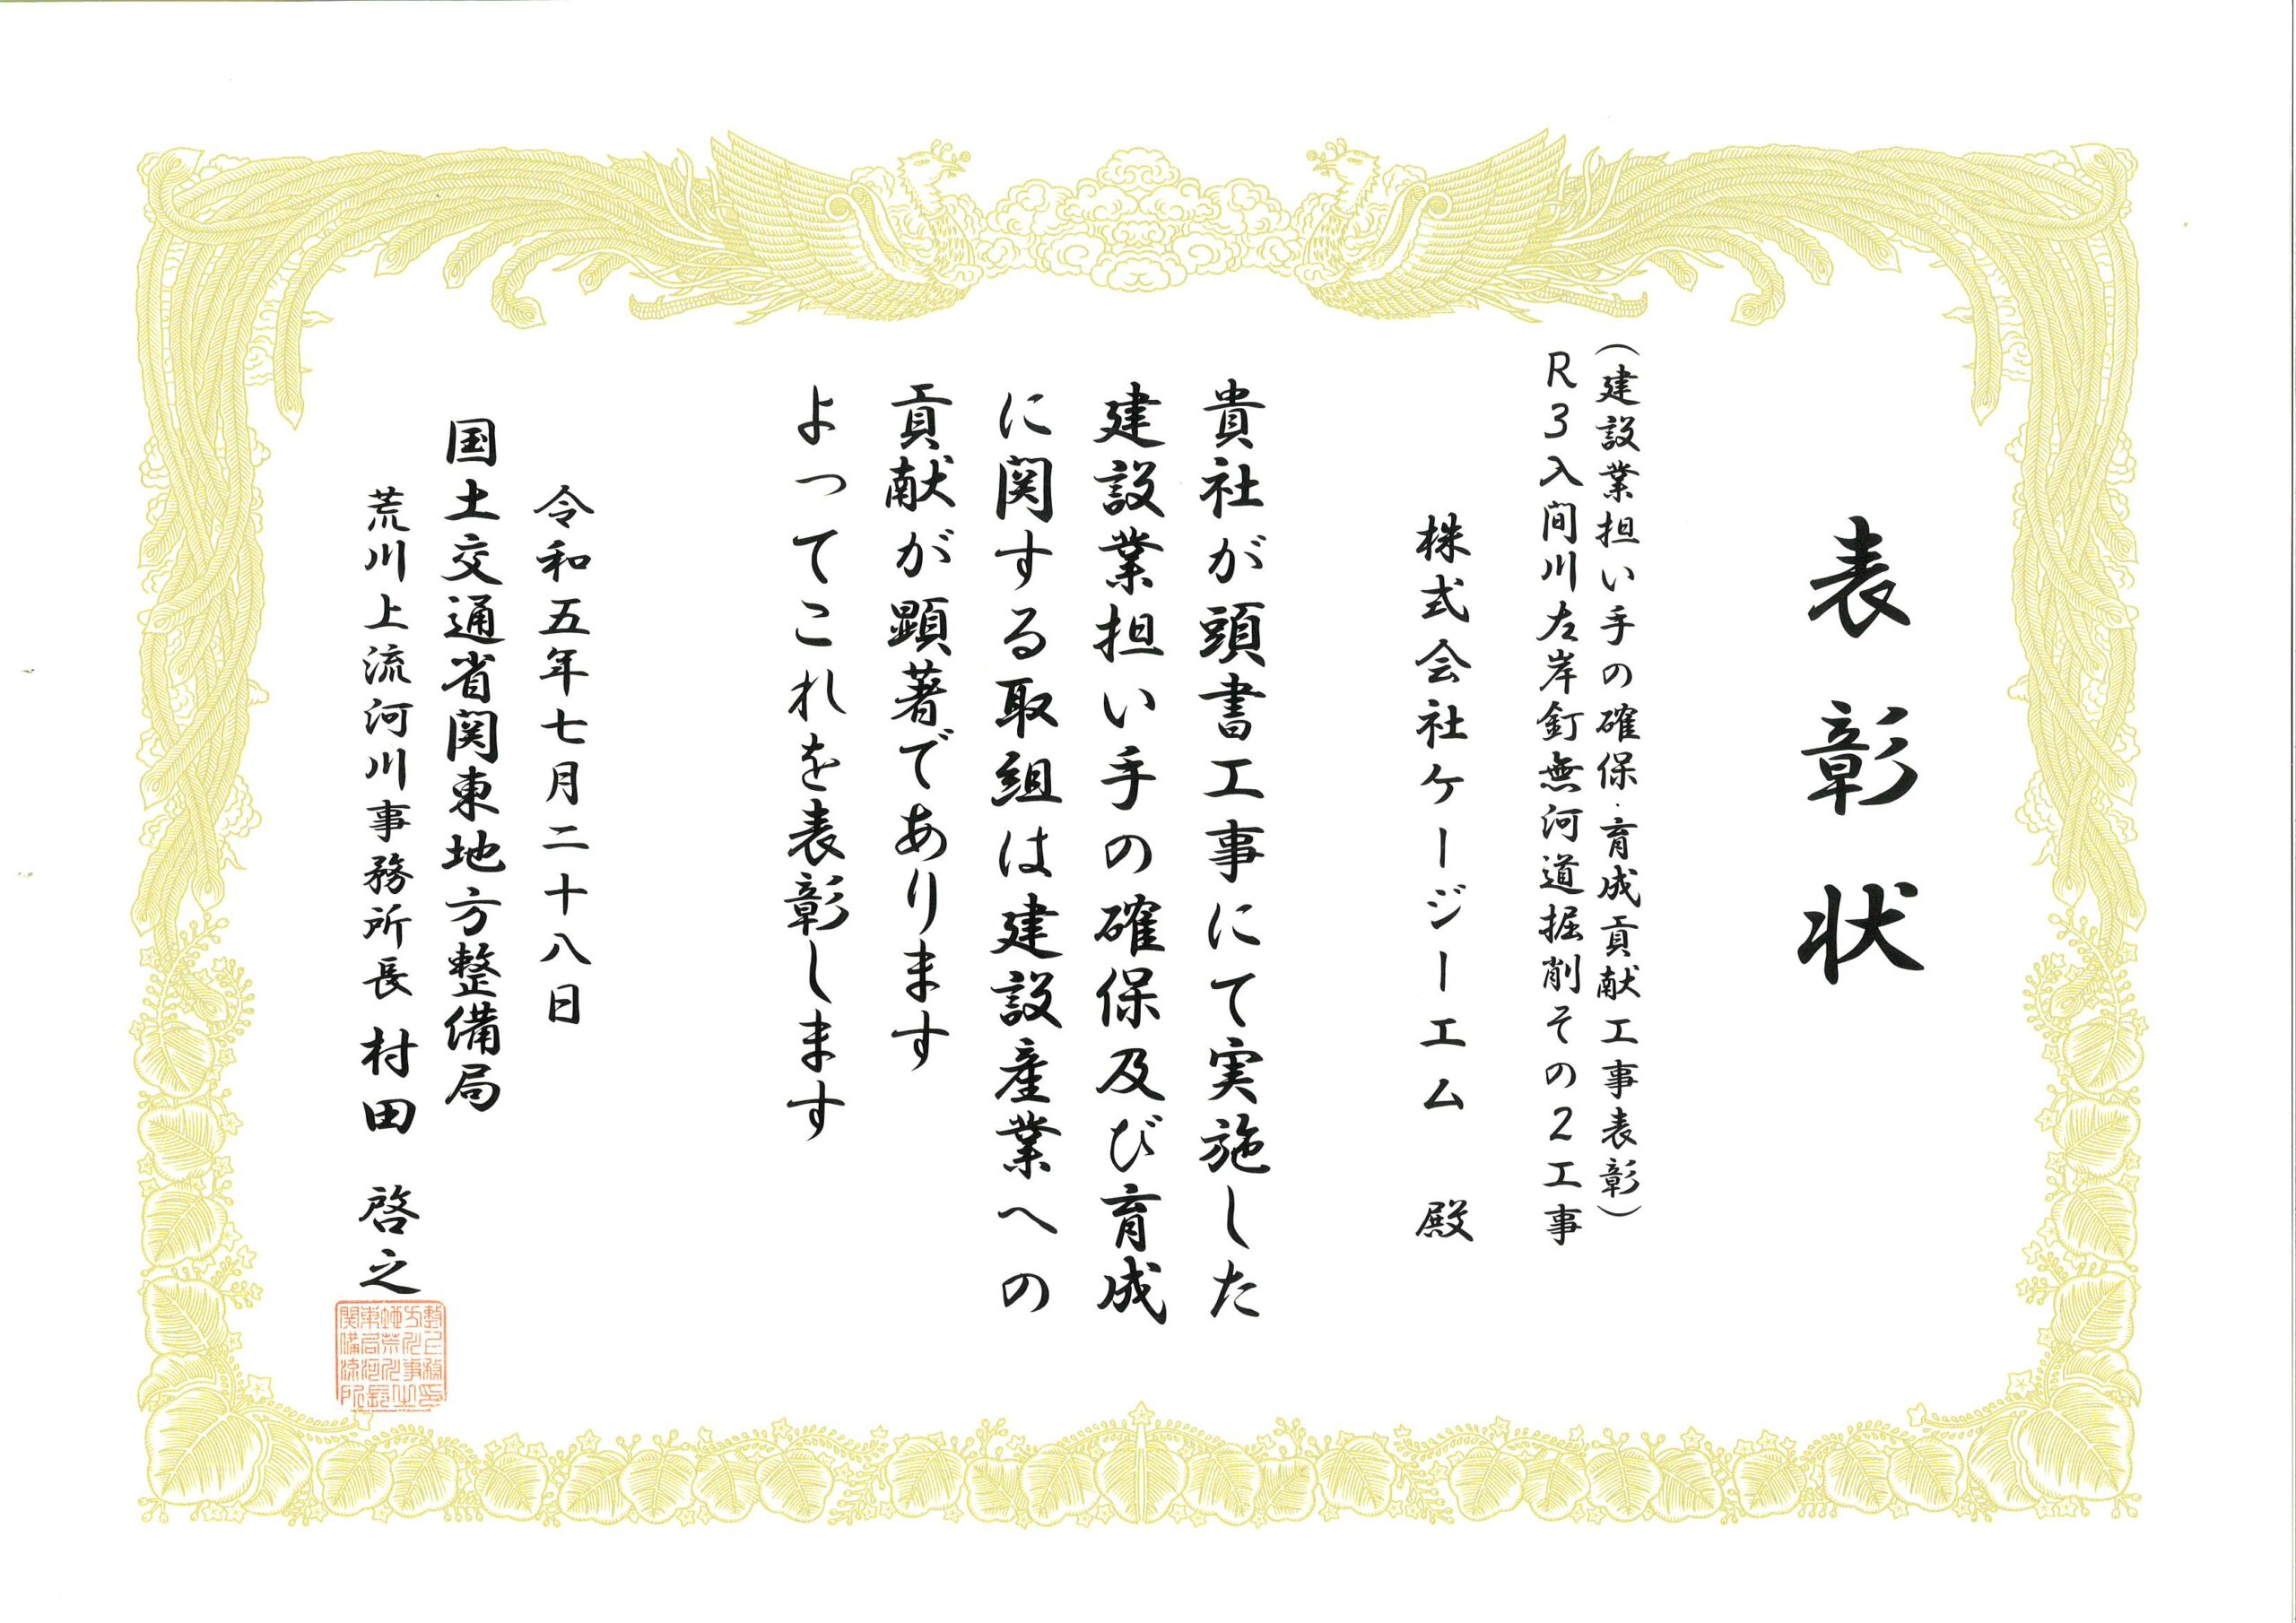 表彰状
（建設業担い手の確保・育成貢献工事表彰）
R3入間川左岸釘無河道掘削その2工事
株式会社ケージーエム 殿
貴社が頭書工事にて実施した
建設業担い手の確保及び育成
に関する取組は建設産業への
貢献が顕著であります
よってこれを表彰します
令和五年七月二十八日
国土交通省関東地方整備局
荒川上流河川事務所長 村田 啓之